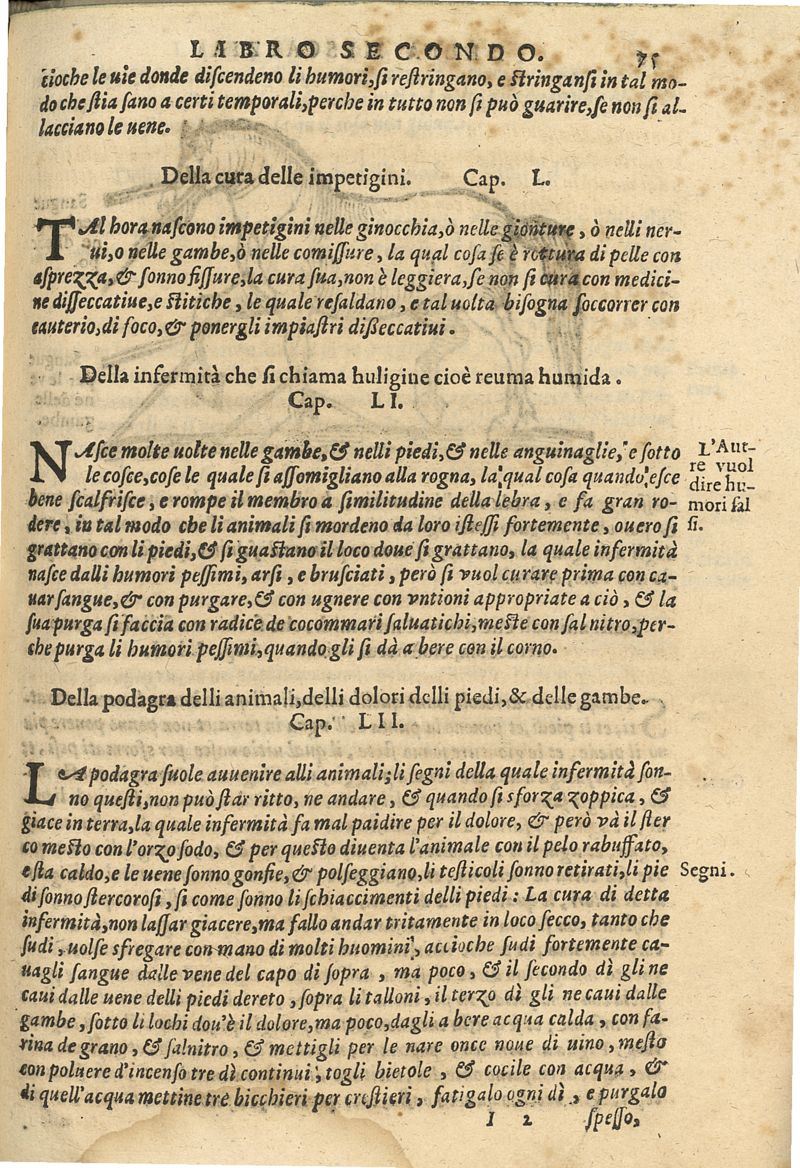 LIBRO SECONDO. 75
cioche le uie donde discendeno li humori, si restringano, e stringansi in tal mo-
do che stia sano a certi temporali, perche in tutto non si può guarire, se non si al-
lacciano le uene.
Della cura delle impetigini. Cap. L.
TAl hora nascono impetigini nelle ginocchia, ò nelle gionture, ò nelli ner-
ui, o nelle gambe, ò nelle comissure, la qual cosa se è rottura di pelle con
asprezza, & sonno fissure, la cura sua, non è leggiera, se non si cura con medici-
ne disseccatiue, e stitiche, le quale resaldano, e tal uolta bisogna soccorrer con
cauterio, di foco, & ponergli impiastri disseccatiui.
Della infermità che si chiama huligine cioè reuma humida.
Cap. LI.
NAsce molte uolte nelle gambe, & nelli piedi, & nelle anguinaglie, e sotto
le cosce, cose le quale si assomigliano alla rogna, la qual cosa quando esce
bene scalfrisce, e rompe il membro a similitudine della lebra, e fa gran ro-
dere, in tal modo che li animali si mordeno da loro istessi fortemente, ouero si
grattano con li piedi, & si guastano il loco doue si grattano, la quale infermità
nasce dalli humori pessimi, arsi, e brusciati, però si vuol curare prima con ca-
uar sangue, & con purgare, & con ugnere con vntioni appropriate a ciò, & la
sua purga si faccia con radice de cocommari saluatichi, meste con sal nitro, per-
che purga li humori pessimi, quando gli si dà a bere con il corno.
L'Aut-
re vuol
dire hu-
mori sal
si.
Della podagra delli animali, delli dolori delli piedi, & delle gambe.
Cap. LII.
LA podagra suole auuenire alli animali; li segni della quale infermità son-
no questi, non può star ritto, ne andare, & quando si sforza zoppica, &
giace in terra, la quale infermità fa mal paidire per il dolore, & però và il ster
co mesto con l'orzo sodo, & per questo diuenta l'animale con il pelo rabuffato,
e sta caldo, e le uene sonno gonfie, & polseggiano, li testicoli sonno retirati, li pie
di sonno stercorosi, si come sonno li schiaccimenti delli piedi: La cura di detta
infermità, non lassar giacere, ma fallo andar tritamente in loco secco, tanto che
sudi, uolse sfregare con mano di molti huomini, accioche sudi fortemente ca-
uagli sangue dalle vene del capo di sopra, ma poco, & il secondo dì gli ne
caui dalle uene delli piedi dereto, sopra li talloni, il terzo dì gli ne caui dalle
gambe, sotto li lochi dou'è il dolore, ma poco, dagli a bere acqua calda, con fa-
rina de grano, & salnitro, & mettigli per le nare once noue di uino, mesto
con poluere d'incenso tre dì continui, togli bietole, & cocile con acqua, &
di quell'acqua mettine tre bicchieri per crestieri, fatigalo ogni dì, e purgalo
Segni.
I 2 spesso,